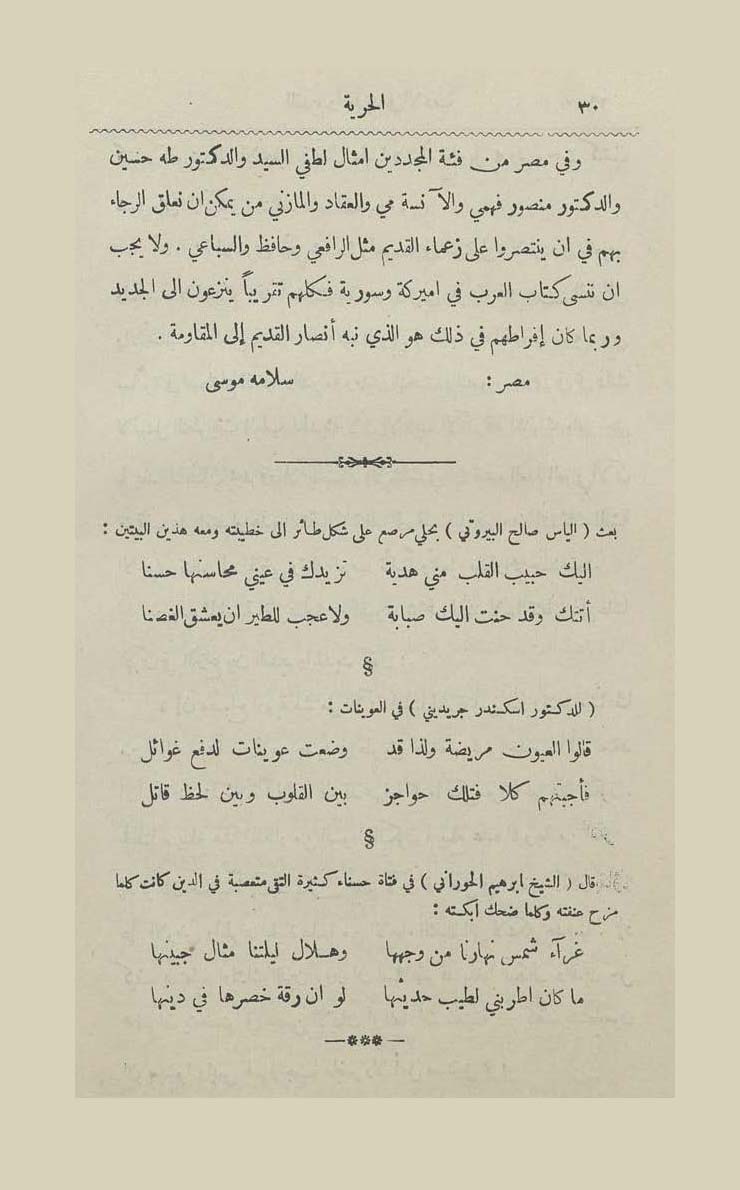 ٣٠ الحرية
وفي مصر من فئة المجددين امثال لطفي السيد والدكتور طه حسين
والدكتور منصور فهمي والآنسة مي والعقاد والمازني من يمكن ان نعلق الرجاء
بهم في ان ينتصروا على زعماء القديم مثل الرافعي وحافظ والسباعي . ولا يجب
ان ننسى كتاب العرب في اميركة وسورية فكلهم تقريباً ينزعون الى الجديد
وربما كان إفراطهم في ذلك هو الذي نبه أنصار القديم إلى المقاومة .
مصر : سلامه موسى
بعث ( الياس صالح البيروتي ) بحلي مرصع على شكل طائر الى خطيبته ومعه هذين البيتين :
اليك حبيب القلب مني هدية تزيدك في عيني محاسنها حسنا
أتتك وقد حنت اليك صبابة ولا عجب للطير ان يعشق الغصنا
§
( للدكتور اسكندر جريديني ) في العوينات :
قالوا العيون مريضة ولذا قد وضعت عوينات لدفع غوائل
فأجبتهم كلا فتلك حواجز بين القلوب وبين لحظ قاتل
§
قال ( الشيخ ابرهيم الحوراني ) في فتاة حسناء كثيرة التقى متعصبة في الدين كانت كلما
مزح عنفته وكلما ضحك أبكته :
غرآء شمس نهارنا من وجهها وهلال ليلتنا مثال جبينها
ما كان اطربني لطيب حديثها لو ان رقة خصرها في دينها